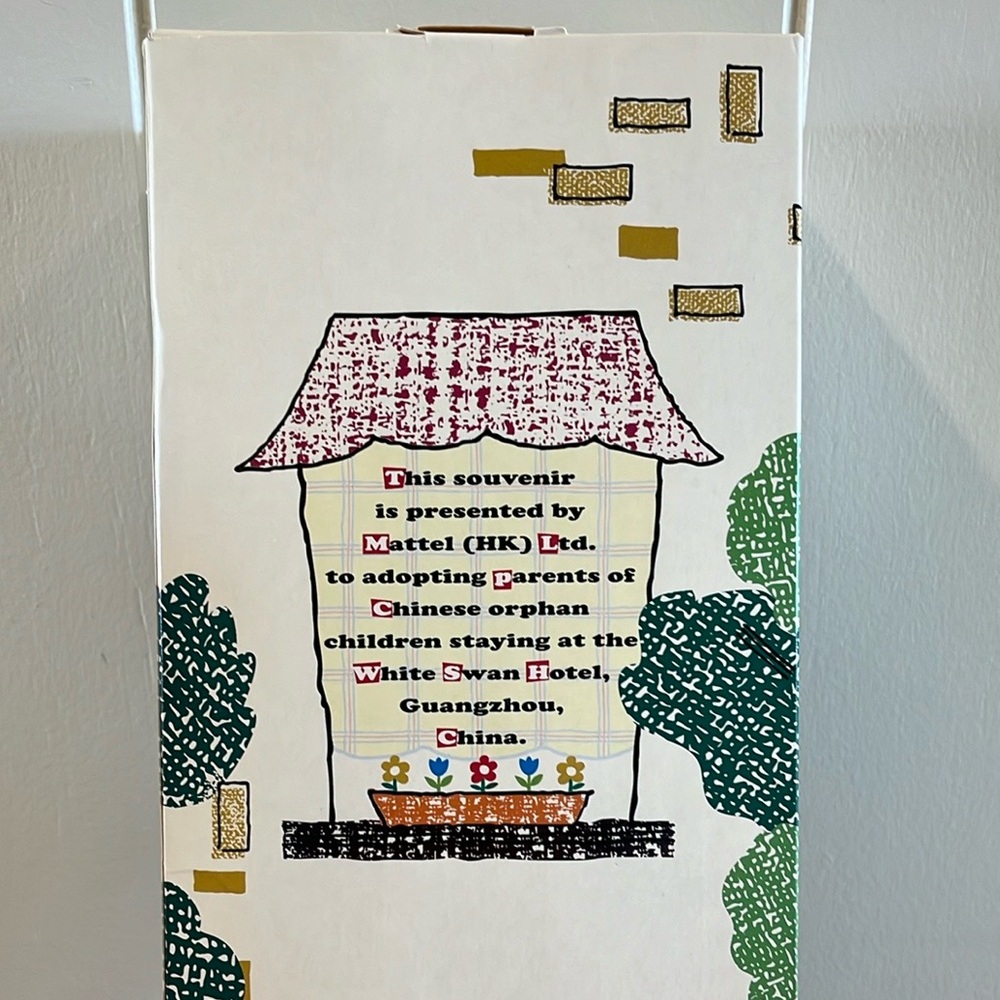 This souvenir
is presented by
Mattel (HK) Ltd.
to adopting parents of
Chinese orphan
children staying at the
White Swan Hotel,
Guangzhou,
China.